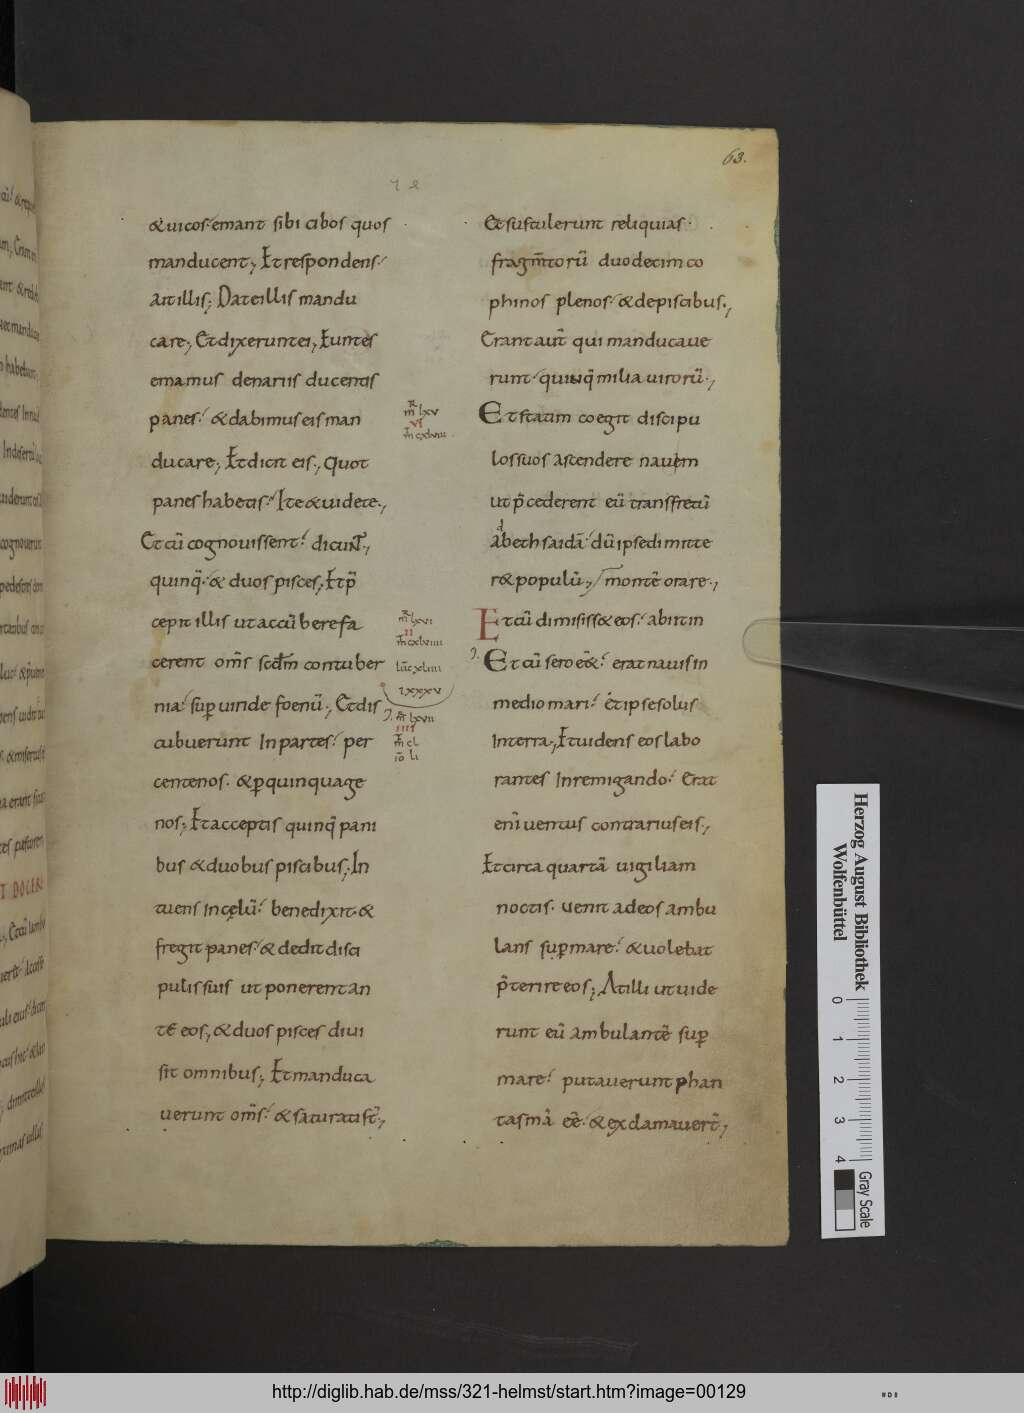 63.
&uicos emant sibi cibos quos
manducent; Et respondens
ait illis; Date illis mandu
care; Et dixerunt ei; Euntes
emamus denariis ducentis
panes. & dabimus eis man
ducare; Et dicit eis; Quot
panes habetis. Ite & uidete;
Et cū cognouissent. dicunt;
quinq;. & duos pisces; Et p̄
cepit illis ut accūberefa
cerent om̄s scdm̄ contuber
nia. sup uiride foenū; Et dis
cubuerunt In partes. per
centenos. & p quinquage
nos; Et acceptis quinq; pani
bus & duobus piscibus; In
tuens in cęlū. benedixit &
fregit panes. & dedit disci
pulis suis ut ponerent an
te eos; & duos pisces diui
sit omnibus; Et manduca
uerunt om̄s. & saturati st̄;
m̄ lxv
vi
m̄ cxlviii
m̄ lxvi
ii
m̄ cxlviiii
lū cxliiii
lxxxv
m̄ lxvii
iiii
m̄ cl
iō li
Et sustulerunt reliquias
fragm̄torū duodecim co
phinos plenos. & de piscibus;
Erant aut̄ qui manducaue
runt. quinq; milia uirorū;
Et statim coegit discipu
los suos ascendere nauem
ut p̄cederent eū trans fretū
ad bethsaidā. dū ipse dimitte
r& populū; montē orare;
Et cū dimisiss& eos. abiit in
Et cū sero ess&. erat nauis in
medio mari. et ipse solus
In terra; Et uidens eos labo
rantes In remigando. Erat
eni uentus contrarius eis;
Et circa quartā uigiliam
noctis. uenit ad eos ambu
lans sup mare. & uolebat
p̄terire eos; At illi ut uide
runt eū ambulantē sup
mare. putauerunt phan
tasmā eē. & exclamauert̄;
Herzog August Bibliothek
Wolfenbüttel
0 1 2 3 4
Gray Scale
http://diglib.hab.de/mss/321-helmst/start.htm?image=00129